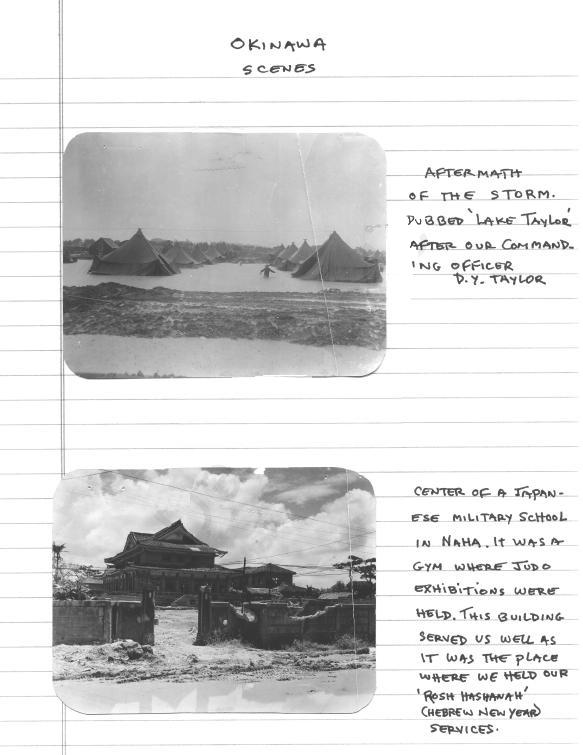 OKINAWA
SCENES
AFTERMATH
OF THE STORM.
DUBBED 'LAKE TAYLOR'
AFTER OUR COMMAND-
ING OFFICER
D.Y. TAYLOR
CENTER OF A JAPAN-
ESE MILITARY SCHOOL
IN NAHA. IT WAS A
GYM WHERE JUDO
EXHIBITIONS WERE
HELD. THIS BUILDING
SERVED US WELL AS
IT WAS THE PLACE
WHERE WE HELD OUR
'ROSH HASHANAH'
(HEBREW NEW YEAR)
SERVICES.